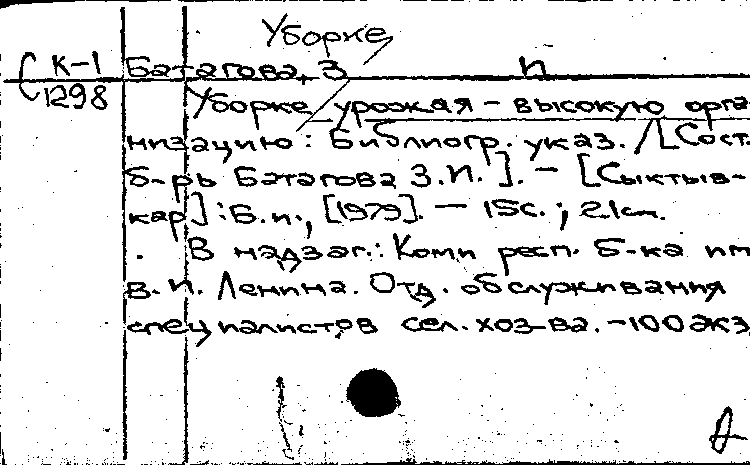 Уборке
К-1 Батагова, З И
1298
Уборке / урожая - высокую орга-
низацию: Библиогр. указ. / [Сост.
б-рь Батагова З.И.]. - [Сыктыв-
кар]: Б.и., [1979]. - 15с.; 21см.
В надзаг.: Коми респ. б-ка им
В.И. Ленина. Отд. обслуживания
специалистов сел. хоз-ва. - 100экз